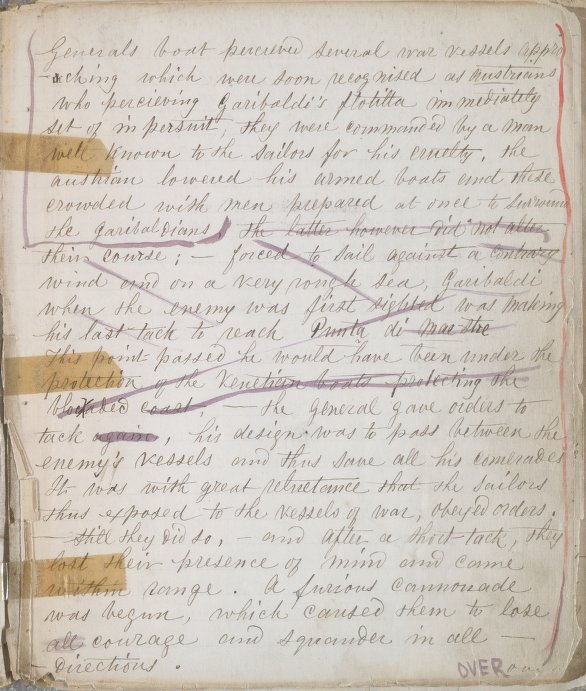 Generals boat percieved several war vessels appro
-aching which were soon recognised as Austrians
who percieving Garibaldi's flotilla immediately
set of in persuit, they were commanded by a man
well known to the sailors for his cruelty. The
Austrian lowered his armed boats and these
crowded with men prepared at once to surround
the garibaldians, the latter however did not alter
their course; – forced to sail against a contrary
wind and on a very rough sea, Garibaldi
when the enemy was first sighted was making
his last tack to reach Punta di Maestre
This point passed he would have been under the
protection of the Venetian boats protecting the
blockaded coast, – the General gave orders to
tack again, his design was to pass between the
enemy's vessels and thus save all his comerades
It was with great reluctance that the sailors
thus exposed to the vessels of war, obeyed orders.
– still they did so, – and after a short tack, they
lost their presence of mind and came
within range. A furious cannonade
was begun, which caused them to lose
all courage and squander in all –
– directions.
OVER